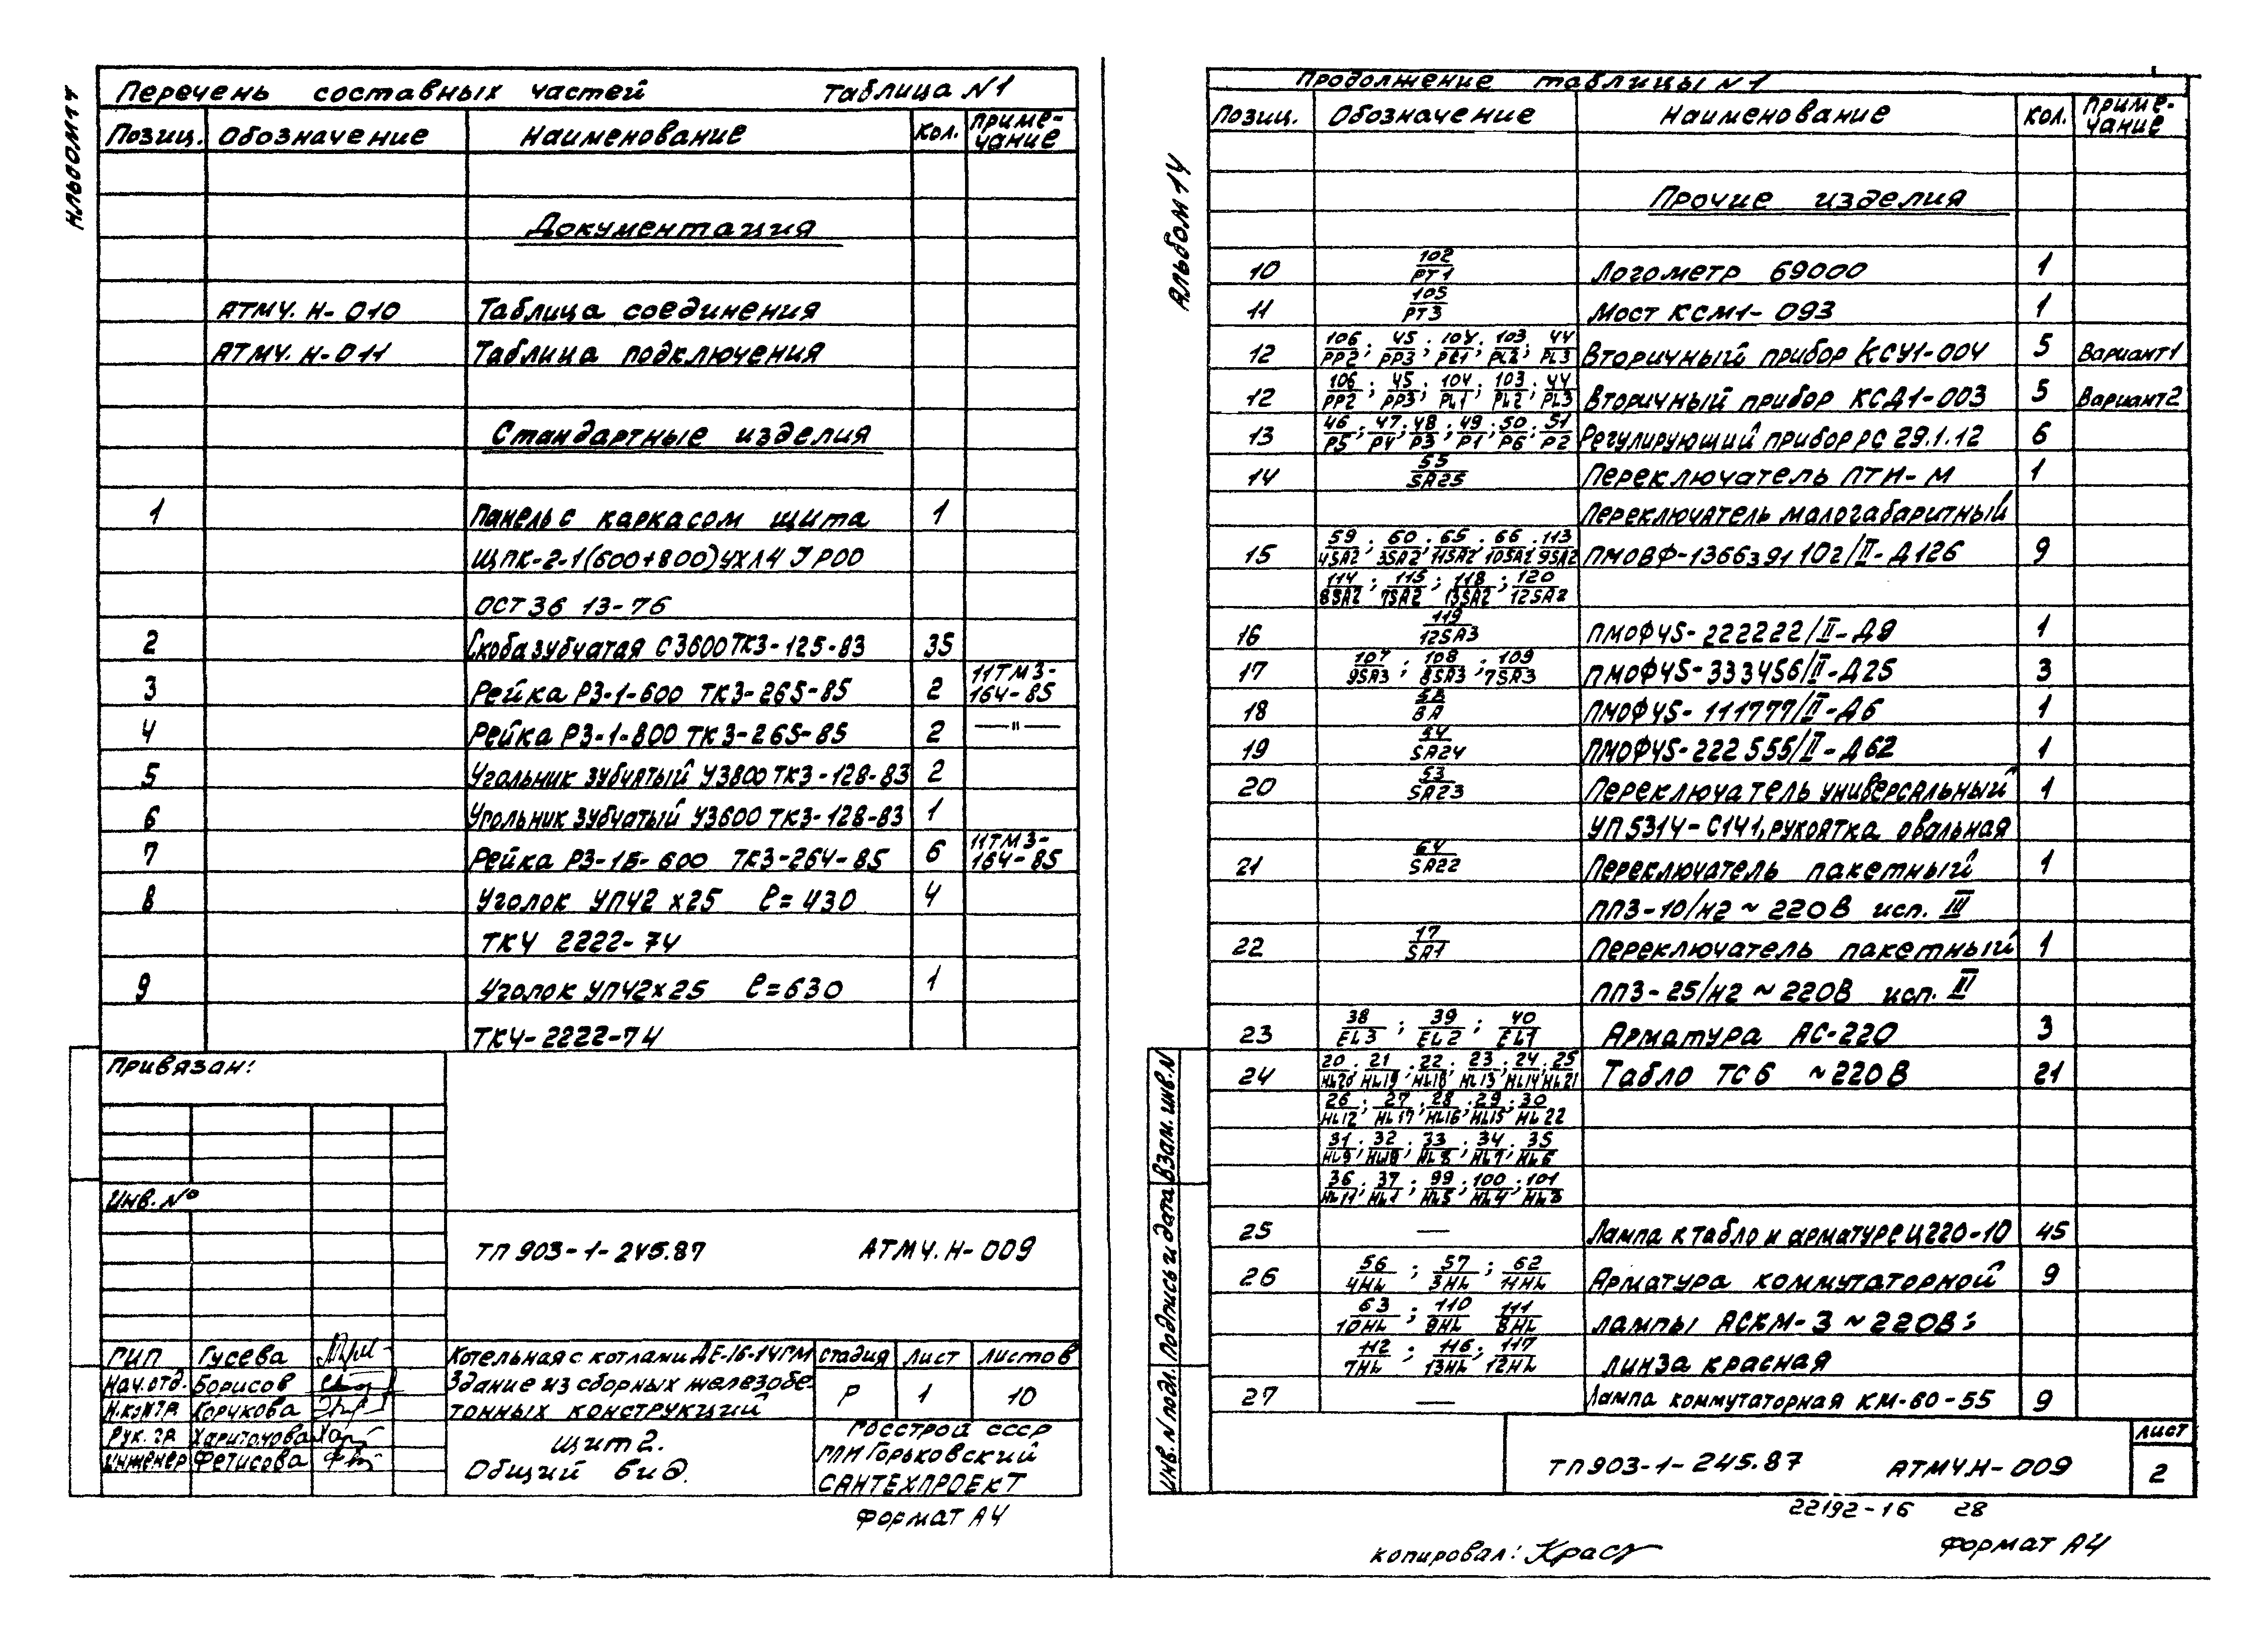 Альбом 14
Перечень составных частей Таблица N1
Позиц. Обозначение Наименование Кол. Приме-
чание
Документация
АТМЧ.Н-010 Таблица соединения
АТМЧ.Н-011 Таблица подключения
Стандартные изделия
1 Панель с каркасом щита 1
ЩПК-2-1(600+800)УХЛ4 IP00
ОСТ 36 13-76
2 Скоба зубчатая СЗ600 ТК3-125-83 35
3 Рейка РЗ-1-600 ТК3-265-85 2 11ТМ3-
164-85
4 Рейка РЗ-1-800 ТК3-265-85 2 —"—
5 Угольник зубчатый УЗ800 ТК3-128-83 2
6 Угольник зубчатый УЗ600 ТК3-128-83 1
7 Рейка РЗ-1Б-600 ТК3-264-85 6 11ТМ3-
164-85
8 Уголок УП42х25 ℓ=430 4
ТК4 2222-74
9 Уголок УП42х25 ℓ=630 1
ТК4-2222-74
Привязан:
Инв. №
ТП 903-1-245.87 АТМЧ.Н-009
ГИП Гусева
Нач.отд. Борисов
Н.контр. Корчкова
Рук. гр. Харитонова
Инженер Фетисова
Котельная с котлами ДЕ-16-14ГМ
Здание из сборных железобе-
тонных конструкций
Стадия Лист Листов
Р 1 10
Щит 2.
Общий вид.
Госстрой СССР
ГПИ Горьковский
САНТЕХПРОЕКТ
Формат А4
Альбом 14
Продолжение таблицы N1
Позиц. Обозначение Наименование Кол. Приме-
чание
Прочие изделия
10 102/РТ1 Логометр 69000 1
11 105/РТ3 Мост КСМ1-093 1
12 106/РР2; 45/РР3; 104/PL1; 103/PL2; 44/PL3 Вторичный прибор КСУ1-004 5 Вариант1
12 106/РР2; 45/РР3; 104/PL1; 103/PL2; 44/PL3 Вторичный прибор КСД1-003 5 Вариант2
13 46/Р5; 47/Р4; 48/Р3; 49/Р1; 50/Р6; 51/Р2 Регулирующий прибор РС 29.1.12 6
14 55/SA25 Переключатель ПТИ-М 1
Переключатель малогабаритный
15 59/4SA2; 60/3SA2; 65/11SA2; 66/10SA2; 113/9SA2 ПМОВФ-1366391102/II-Д126 9
114/8SA2; 115/7SA2; 118/13SA2; 120/12SA2
16 119/12SA3 ПМОФ45-222222/II-Д9 1
17 107/9SA3; 108/8SA3; 109/7SA3 ПМОФ45-333456/II-Д25 3
18 58/ВА ПМОФ45-111777/II-Д6 1
19 54/SA24 ПМОФ45-222555/II-Д62 1
20 53/SA23 Переключатель универсальный 1
УП5314-С141, рукоятка овальная
21 64/SA22 Переключатель пакетный 1
ПП3-10/Н2 ~ 220В исп. III
22 17/SA1 Переключатель пакетный 1
ПП3-25/Н2 ~ 220В исп. II
23 38/EL3; 39/EL2; 40/EL1 Арматура АС-220 3
24 20/HL20; 21/HL19; 22/HL18; 23/HL13; 24/HL14; 25/HL21 Табло ТС6 ~220В 21
26/HL12; 27/HL17; 28/HL16; 29/HL15; 30/HL22
31/HL9; 32/HL10; 33/HL8; 34/HL7; 35/HL6
36/HL11; 37/HL1; 99/HL5; 100/HL4; 101/HL3
25 — Лампа к табло и арматуре Ц220-10 45
26 56/4HL; 57/3HL; 62/11HL Арматура коммутаторной 9
63/10HL; 110/9HL 111/8HL лампы АСКМ-3 ~220В;
112/7HL; 116/13HL; 117/12HL линза красная
27 — Лампа коммутаторная КМ-60-55 9
Инв. N подл. Подпись и дата Взам. инв. N
ТП 903-1-245.87 АТМЧ.Н-009
Лист
2
22192-16 28
Копировал: Крас
Формат А4